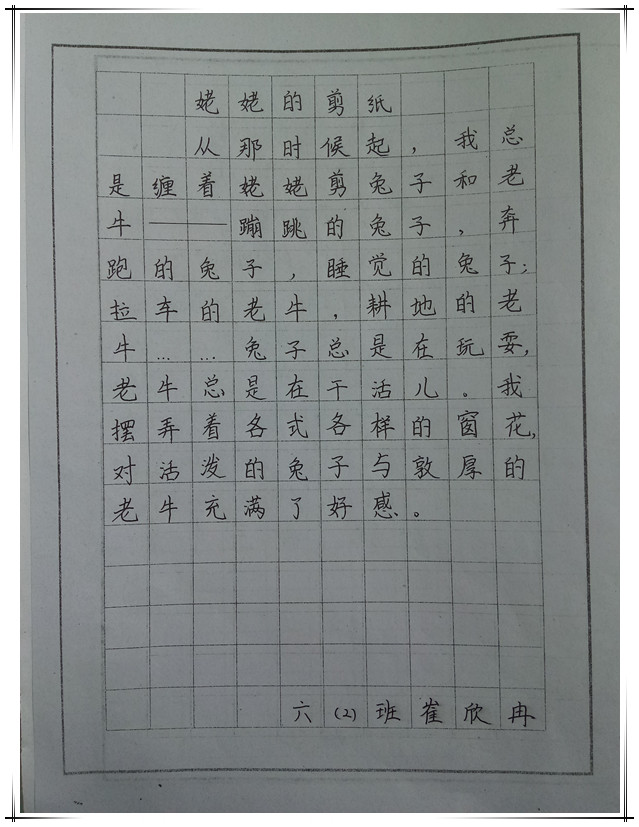 姥姥的剪纸
从那时候起，我总
是缠着姥姥剪兔子和老
牛——蹦跳的兔子，奔
跑的兔子，睡觉的兔子；
拉车的老牛，耕地的老
牛……兔子总是在玩耍，
老牛总是在干活儿。我
摆弄着各式各样的窗花，
对活泼的兔子与敦厚的
老牛充满了好感。
六(2)班崔欣冉